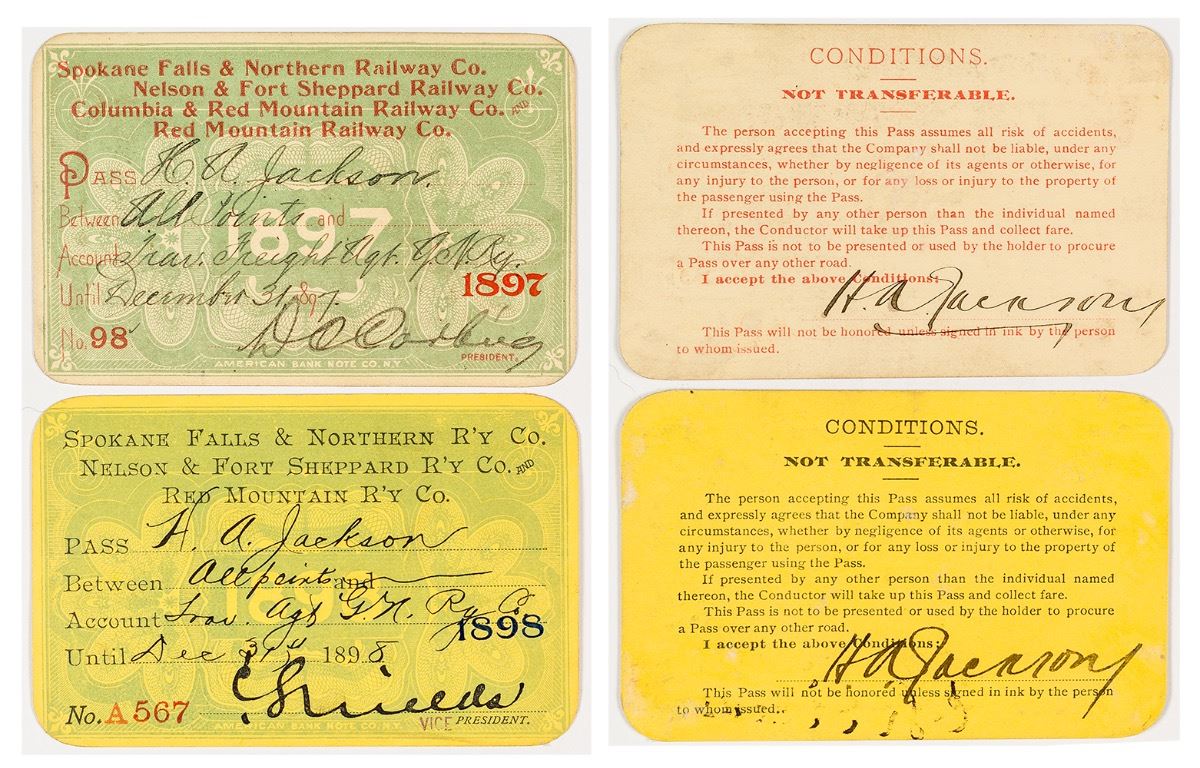 Spokane Falls & Northern Railway Co.
Nelson & Fort Sheppard Railway Co.
Columbia & Red Mountain Railway Co. AND
Red Mountain Railway Co.
PASS H. A. Jackson.
Between All Points and
Account Trav. Freight Agt. G. N. Ry.
Until December 31, 1897.
1897
1897
No. 98
D C Corbin
PRESIDENT.
AMERICAN BANK NOTE CO. N.Y.
CONDITIONS.
NOT TRANSFERABLE.
The person accepting this Pass assumes all risk of accidents,
and expressly agrees that the Company shall not be liable, under any
circumstances, whether by negligence of its agents or otherwise, for
any injury to the person, or for any loss or injury to the property of
the passenger using the Pass.
If presented by any other person than the individual named
thereon, the Conductor will take up this Pass and collect fare.
This Pass is not to be presented or used by the holder to procure
a Pass over any other road.
I accept the above Conditions:
H A Jackson
This Pass will not be honored unless signed in ink by the person
to whom issued.
SPOKANE FALLS & NORTHERN R'Y CO.
NELSON & FORT SHEPPARD R'Y CO. AND
RED MOUNTAIN R'Y CO.
PASS H. A. Jackson
Between All points and
Account Trav. Agt G. N. Ry Co.
1898
Until Dec 31st 1898
No. A 567
VICE PRESIDENT.
AMERICAN BANK NOTE CO. N.Y.
CONDITIONS.
NOT TRANSFERABLE.
The person accepting this Pass assumes all risk of accidents,
and expressly agrees that the Company shall not be liable, under any
circumstances, whether by negligence of its agents or otherwise, for
any injury to the person, or for any loss or injury to the property of
the passenger using the Pass.
If presented by any other person than the individual named
thereon, the Conductor will take up this Pass and collect fare.
This Pass is not to be presented or used by the holder to procure
a Pass over any other road.
I accept the above Conditions:
H A Jackson
This Pass will not be honored unless signed in ink by the person
to whom issued.